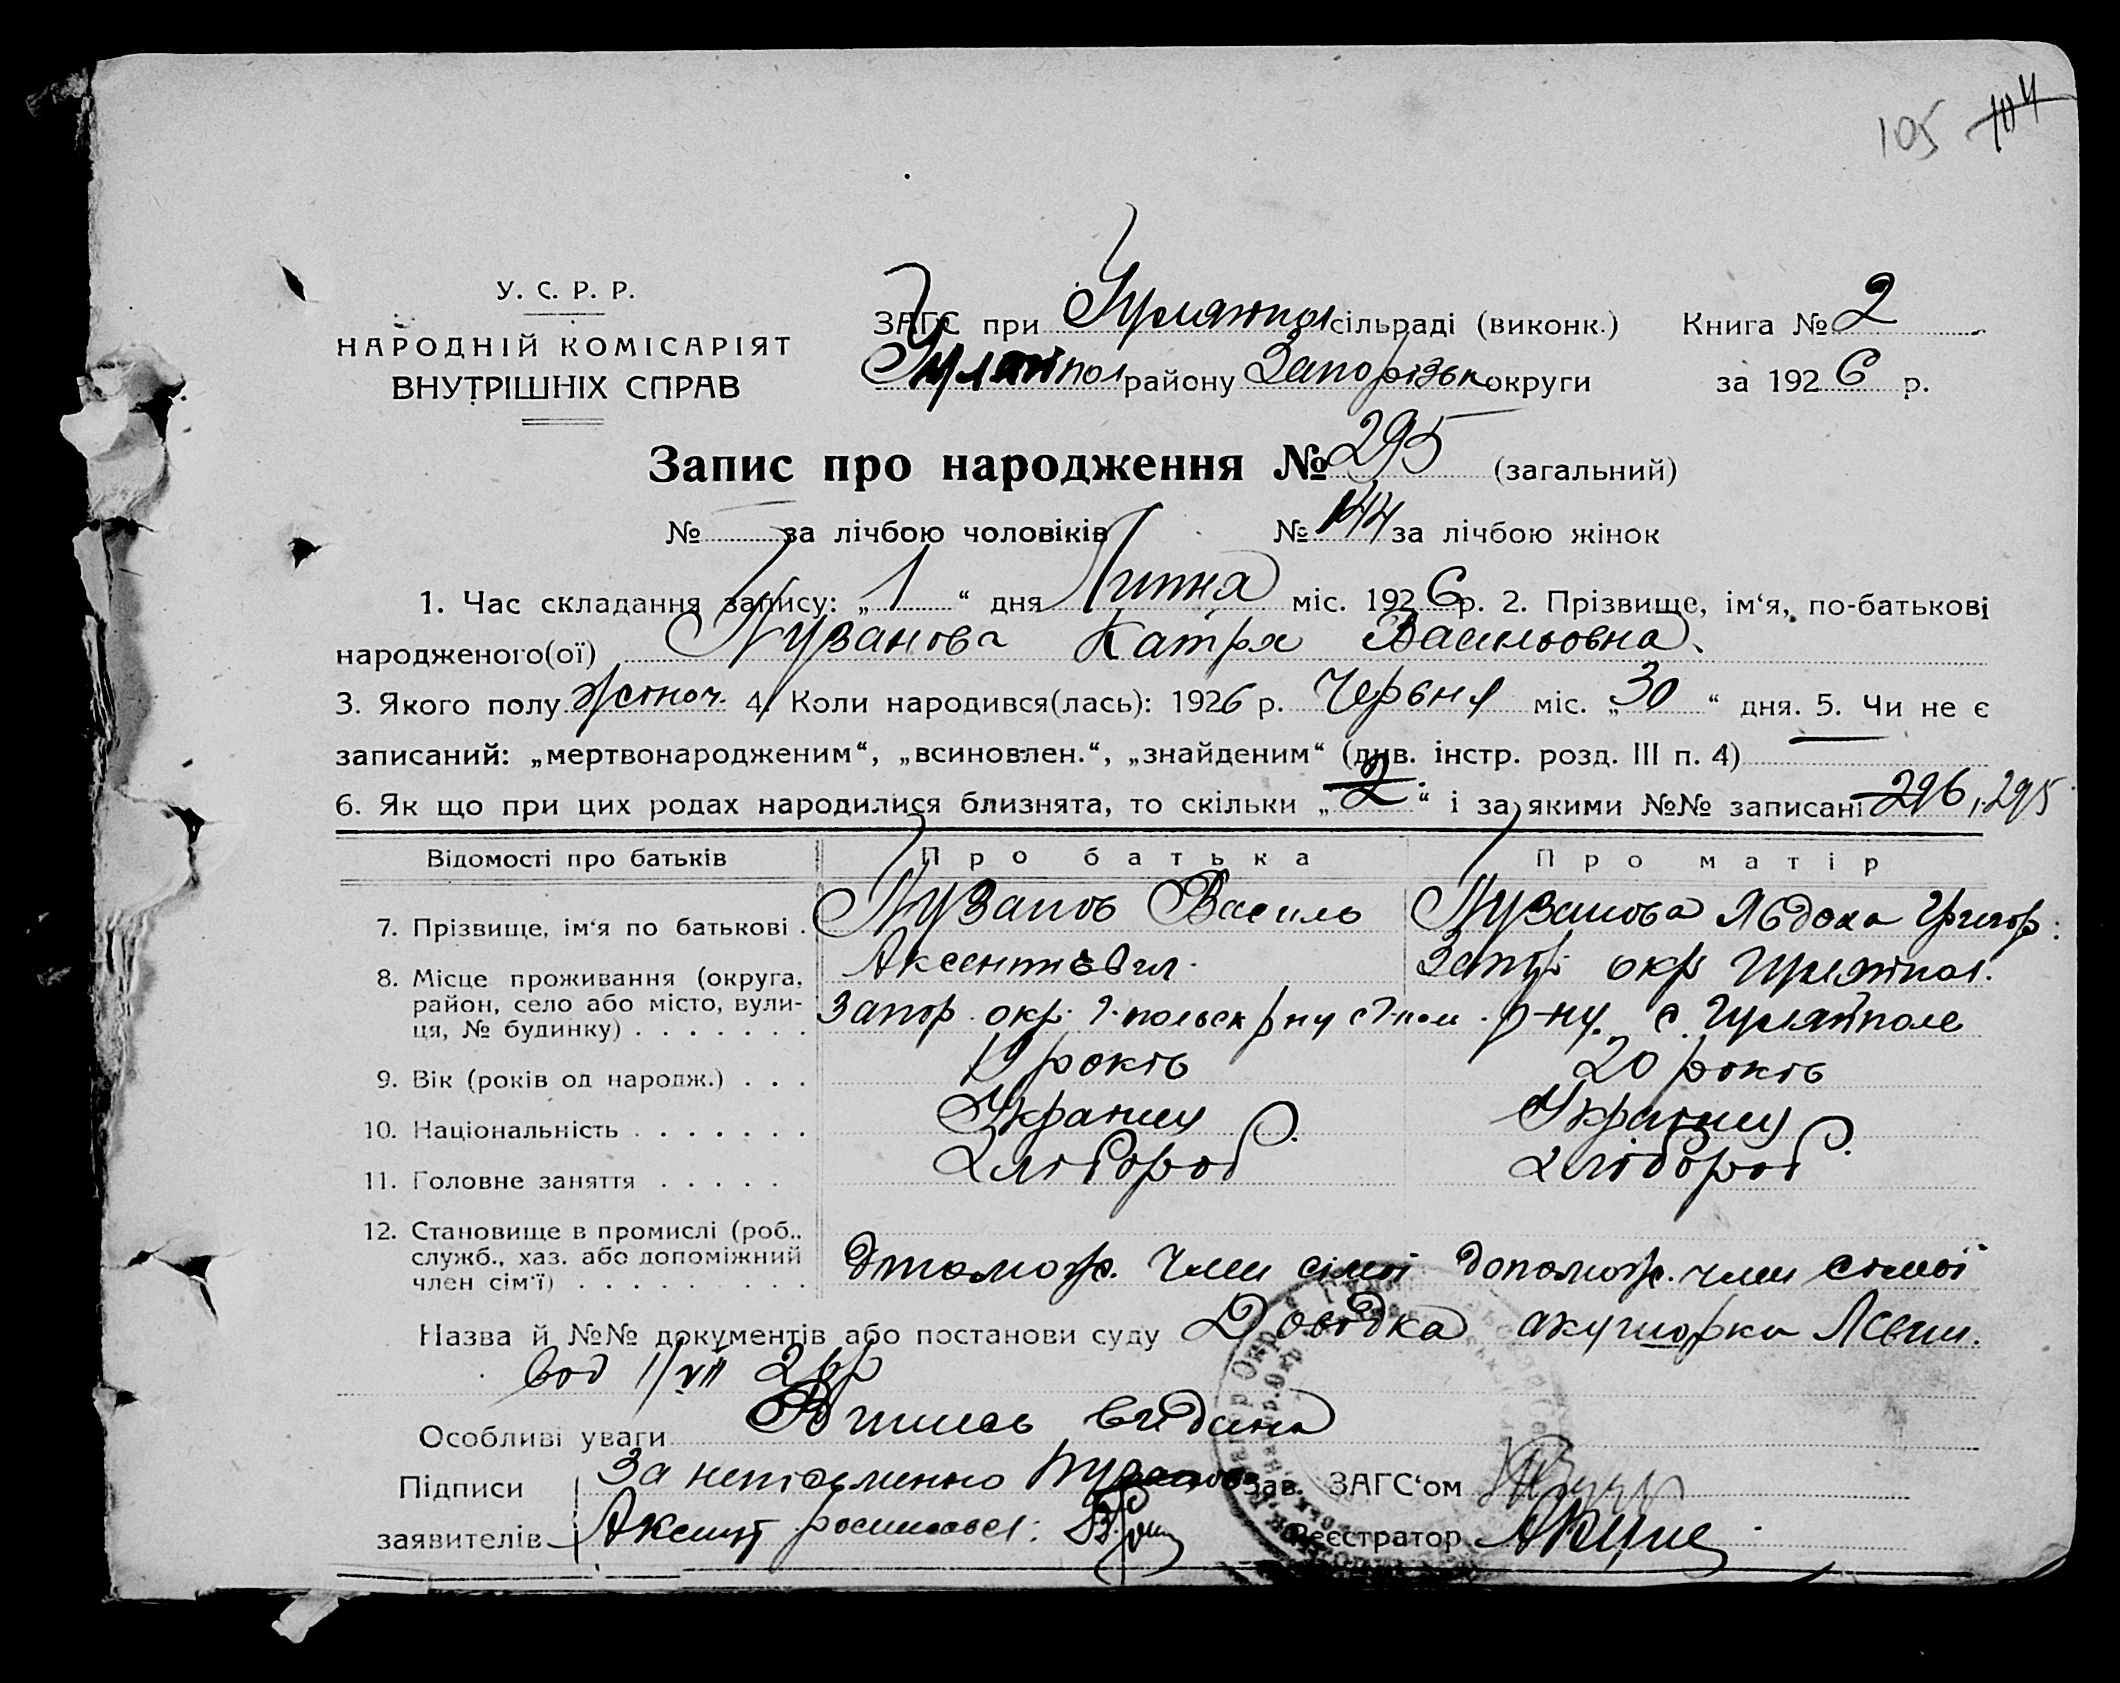 105 104
У. С. Р. Р.
НАРОДНІЙ КОМІСАРІЯТ
ВНУТРІШНІХ СПРАВ
ЗАГС при Гуляйпол сільраді (виконк.) Книга № 2
Гуляйпол району Запорізьк округи за 1926 р.
Запис про народження № 295 (загальний)
№ за лічбою чоловіків № 144 за лічбою жінок
1. Час складання запису: „1“ дня Липня міс. 1926 р. 2. Прізвище, ім‘я, по-батькові
народженого(ої) Пузанова Катря Васильовна.
3. Якого полу жіноч. 4. Коли народився(лась): 1926 р. Червня міс. „30“ дня. 5. Чи не є
записаний: „мертвонародженим“, „всиновлен.“, „знайденим“ (див. інстр. розд. III п. 4)
6. Як що при цих родах народилися близнята, то скільки „2“ і за якими №№ записані 296, 295
Відомості про батьків Про батька Про матір
7. Прізвище, ім‘я по батькові . Пузанов Василь Пузанова Явдоха Григор:
Аксентієвич.
8. Місце проживання (округа, Запор окр Гуляйпол.
район, село або місто, вули- Запор. окр. Г.польск р-ну с Г-пол р-ну. с. Гуляйполе
ця, № будинку) . . . . . . .
9. Вік (років од народж.) . . . 19 років 20 років
10. Національність . . . . . . . Украинц Украінц
11. Головне заняття . . . . . Хлібороб. Хлібороб.
12. Становище в промислі (роб.,
служб., хаз. або допоміжний Допомож. член сімої Допомож. член сімої
член сім‘ї) . . . . . . . . .
Назва й №№ документів або постанови суду Довідка акушорки
вод 1/VII 26р
Особливі уваги Випись видана
Підписи За неписьменно Зав. ЗАГС‘ом
заявителів Аксент росписався: Реєстратор